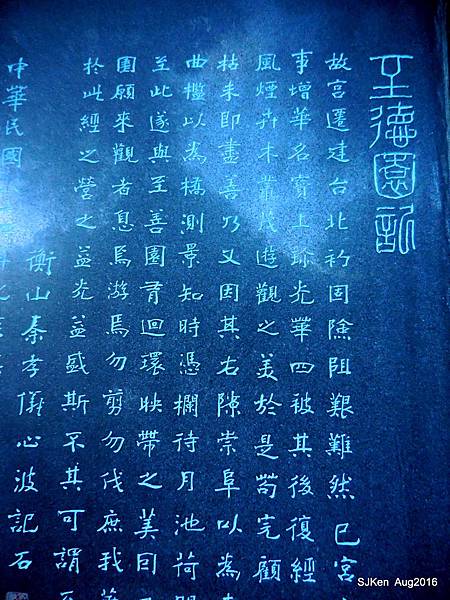 至德園記
故宮遷建台北初固險阻艱難然已宮
事增華名實上躋光華四被其後復經
風煙卉木叢茂遊觀之美於是苟完顧
枯朱即畫善乃又因其右隙崇阜以為
曲檻以為橋測景知時憑欄待月池荷
至此遂與至善園胥迴環映帶之美因
園願來觀者息焉游焉勿剪勿伐庶我
於此經之營之益光益盛斯不其可謂至
衡山秦孝儀心波記石
中華民國
SJKen Aug2016